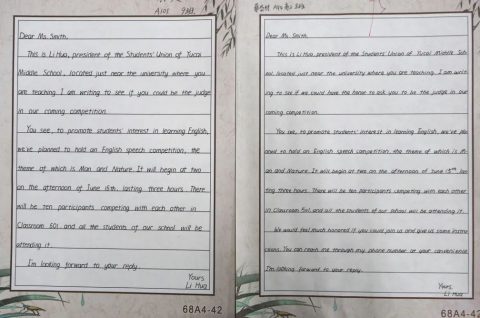 A108 9班
Dear Ms. Smith,
This is Li Hua, president of the Students' Union of Yucai
Middle School, located just near the university where you
are teaching. I am writing to see if you could be the judge
in our coming competition.
You see, to promote students' interest in learning English,
we've planned to hold an English speech competition, the
theme of which is Man and Nature. It will begin at two
on the afternoon of June 15th, lasting three hours. There
will be ten participants competing with each other in
Classroom 501 and all the students of our school will be
attending it.
I'm looking forward to your reply.
Yours,
Li Hua
68A4-42
Dear Ms. Smith,
This is Li Hua, president of the Students' Union of Yucai Middle Sch
ool, located just near the university where you are teaching. I am writ
ing to see if we could have the honor to ask you to be the judge in our
coming competition.
You see, to promote students' interest in learning English, we've pla
nned to hold an English speech competition, the theme of which is M
an and Nature. It will begin at two on the afternoon of June 15th, las
ting three hours. There will be ten participants competing with each other
in Classroom 501 and all the students of our school will be attending it.
We would feel much honored if you could join us and give us some instru
ctions. You can reach me through my phone number at your convenience.
I'm looking forward to your reply.
Yours,
Li Hua
68A4-42